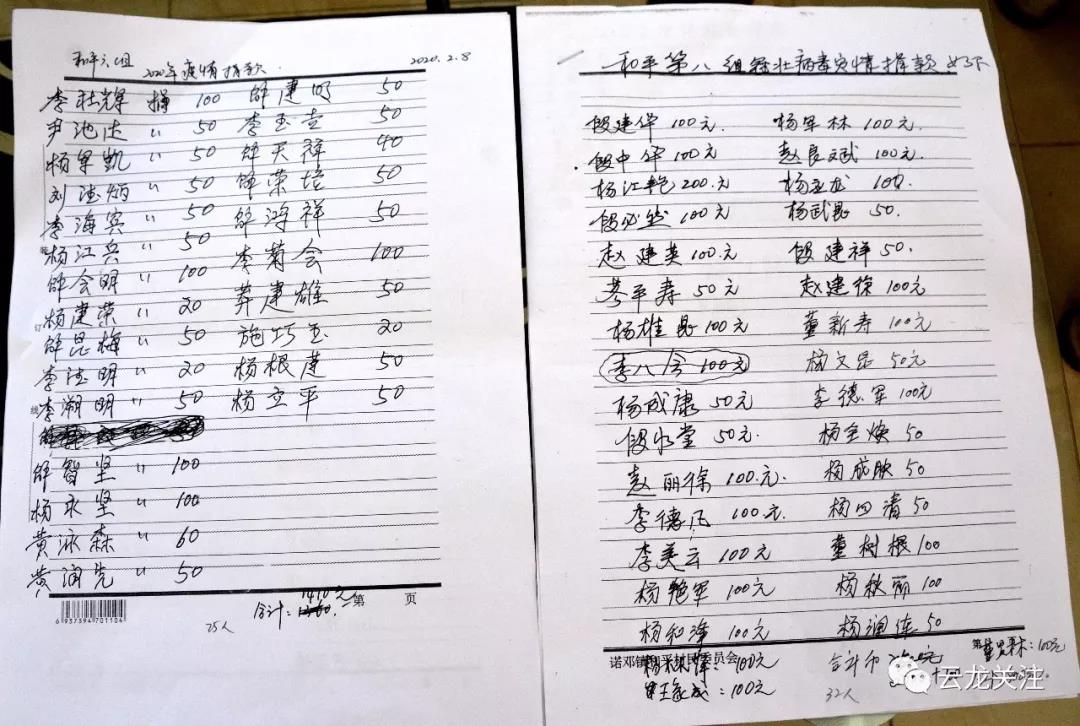 和平六组
2020年疫情捐款
2020.2.8
李社辉 捐 100 邰建明 50
尹池达 〃 50 李玉吉 50
杨军凯 〃 50 邰天祥 40
刘德炳 〃 50 邰荣培 50
李海宾 〃 50 邰鸿祥 50
杨江兵 〃 50 李菊会 100
邰会明 〃 100 建雄 50
杨建荣 〃 20 施巧玉 20
邰昆梅 〃 50 杨根莲 50
李德明 〃 20 杨立平 50
李溯明 〃 50
邰智坚 〃 100
杨永坚 〃 100
黄泳森 〃 60
黄润先 〃 50
合计:1410元
第 页
6937394701104
25人
和平第八组冠壮病毒疫情捐款如下
段建华 100元. 杨军林 100元.
段中华 100元 赵良斌 100元.
杨江艳 200.元 杨亚龙 100.
段必然 100元 杨武昆 50.
赵建英 100元 段建祥 50.
李寿 50元 赵建徐 100元
杨雄昆 100元 董新寿 100元
李八今 100元 杨文昆 50元
杨成康 50元 李德军 100元
段永堂 50元. 杨全焕 50
赵丽徐 100.元. 杨成映 50
李德凡 100元. 杨四清 50
李美云 100元 董树根 100
杨艳军 100元 杨秋丽 100
杨和泽 100元 杨润连 50
诺邓镇和平村民委员会
:100元
:100元
合计币
32人
:100元
云龙关注